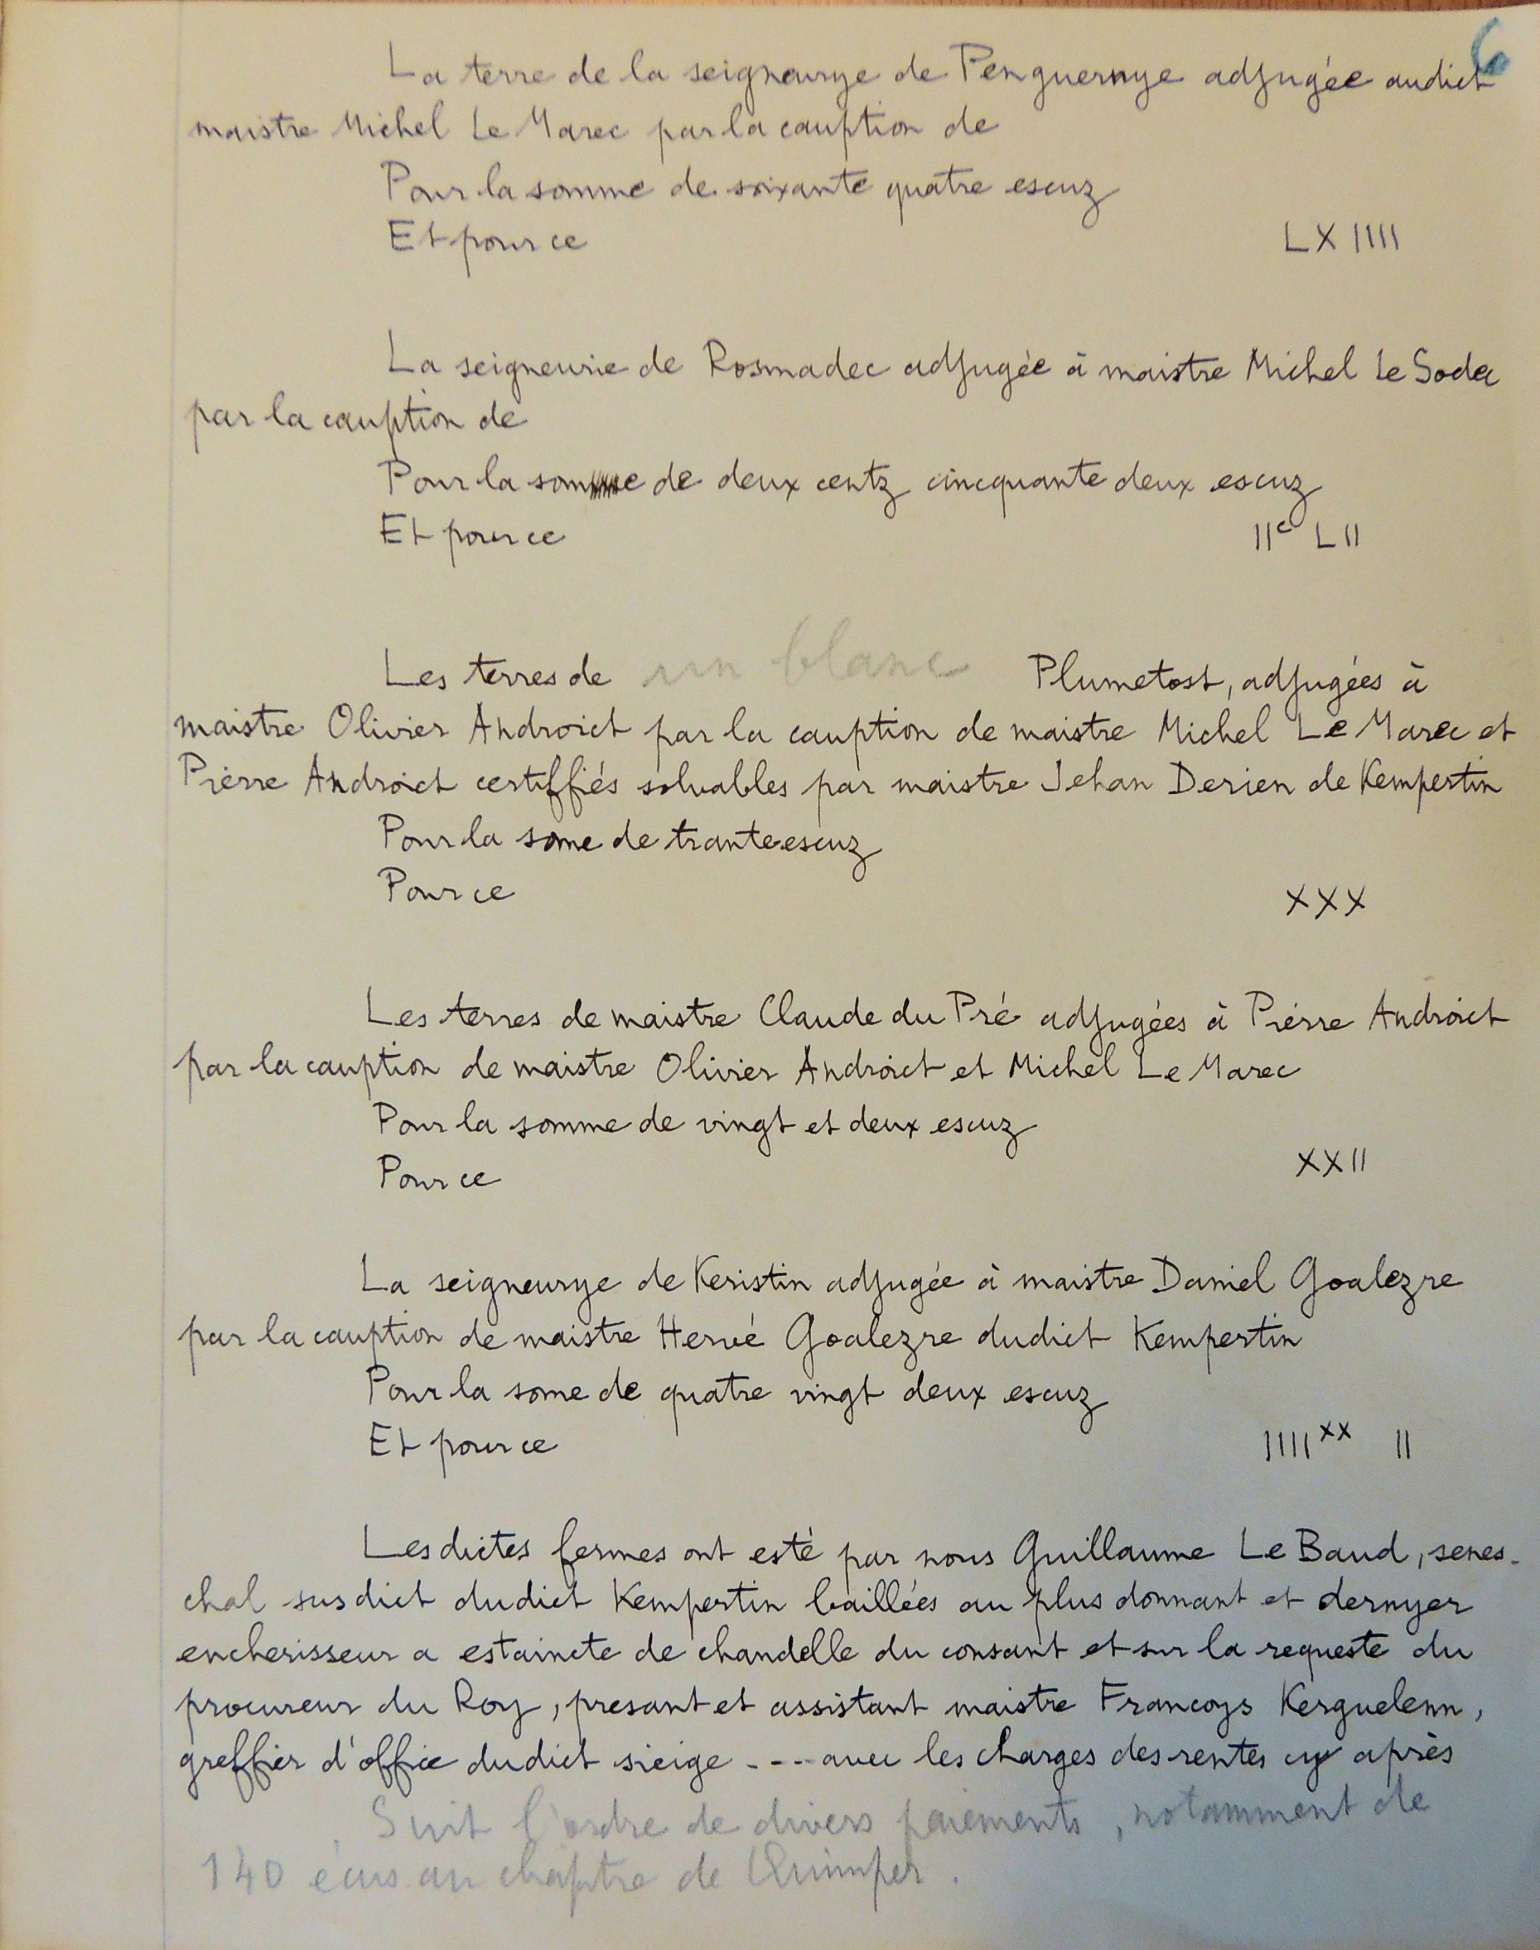 6
La terre de la seigneurye de Penguernye adjugée audict
maistre Michel Le Marec par la cauption de
Pour la somme de soixante quatre escuz
Et pour ce LX IIII
La seigneurie de Rosmadec adjugée à maistre Michel Le Sodec
par la cauption de
Pour la somme de deux centz cincquante deux escuz
Et pour ce IIc LII
Les terres de un blanc Plumetost, adjugées à
maistre Olivier Androict par la cauption de maistre Michel Le Marec et
Pierre Androict certiffiés solvables par maistre Jehan Derien de Kempertin
Pour la some de trante escuz
Pour ce XXX
Les terres de maistre Claude du Pré adjugées à Pierre Androict
par la cauption de maistre Olivier Androict et Michel Le Marec
Pour la somme de vingt et deux escuz
Pour ce XXII
La seigneurye de Keristin adjugée à maistre Daniel Goalezre
par la cauption de maistre Hervé Goalezre dudict Kempertin
Pour la some de quatre vingt deux escuz
Et pour ce IIIIxx II
Lesdictes fermes ont esté par nous Guillaume Le Baud, senes-
chal susdict dudict Kempertin baillées au plus donnant et dernyer
encherisseur a estaincte de chandelle du consant et sur la requeste du
procureur du Roy, presant et assistant maistre Francoys Kerguelenn,
greffier d'office dudict sieige - - - avec les charges des rentes cy après
Suit l'ordre de divers paiements, notamment de
140 écus au chapitre de Quimper.